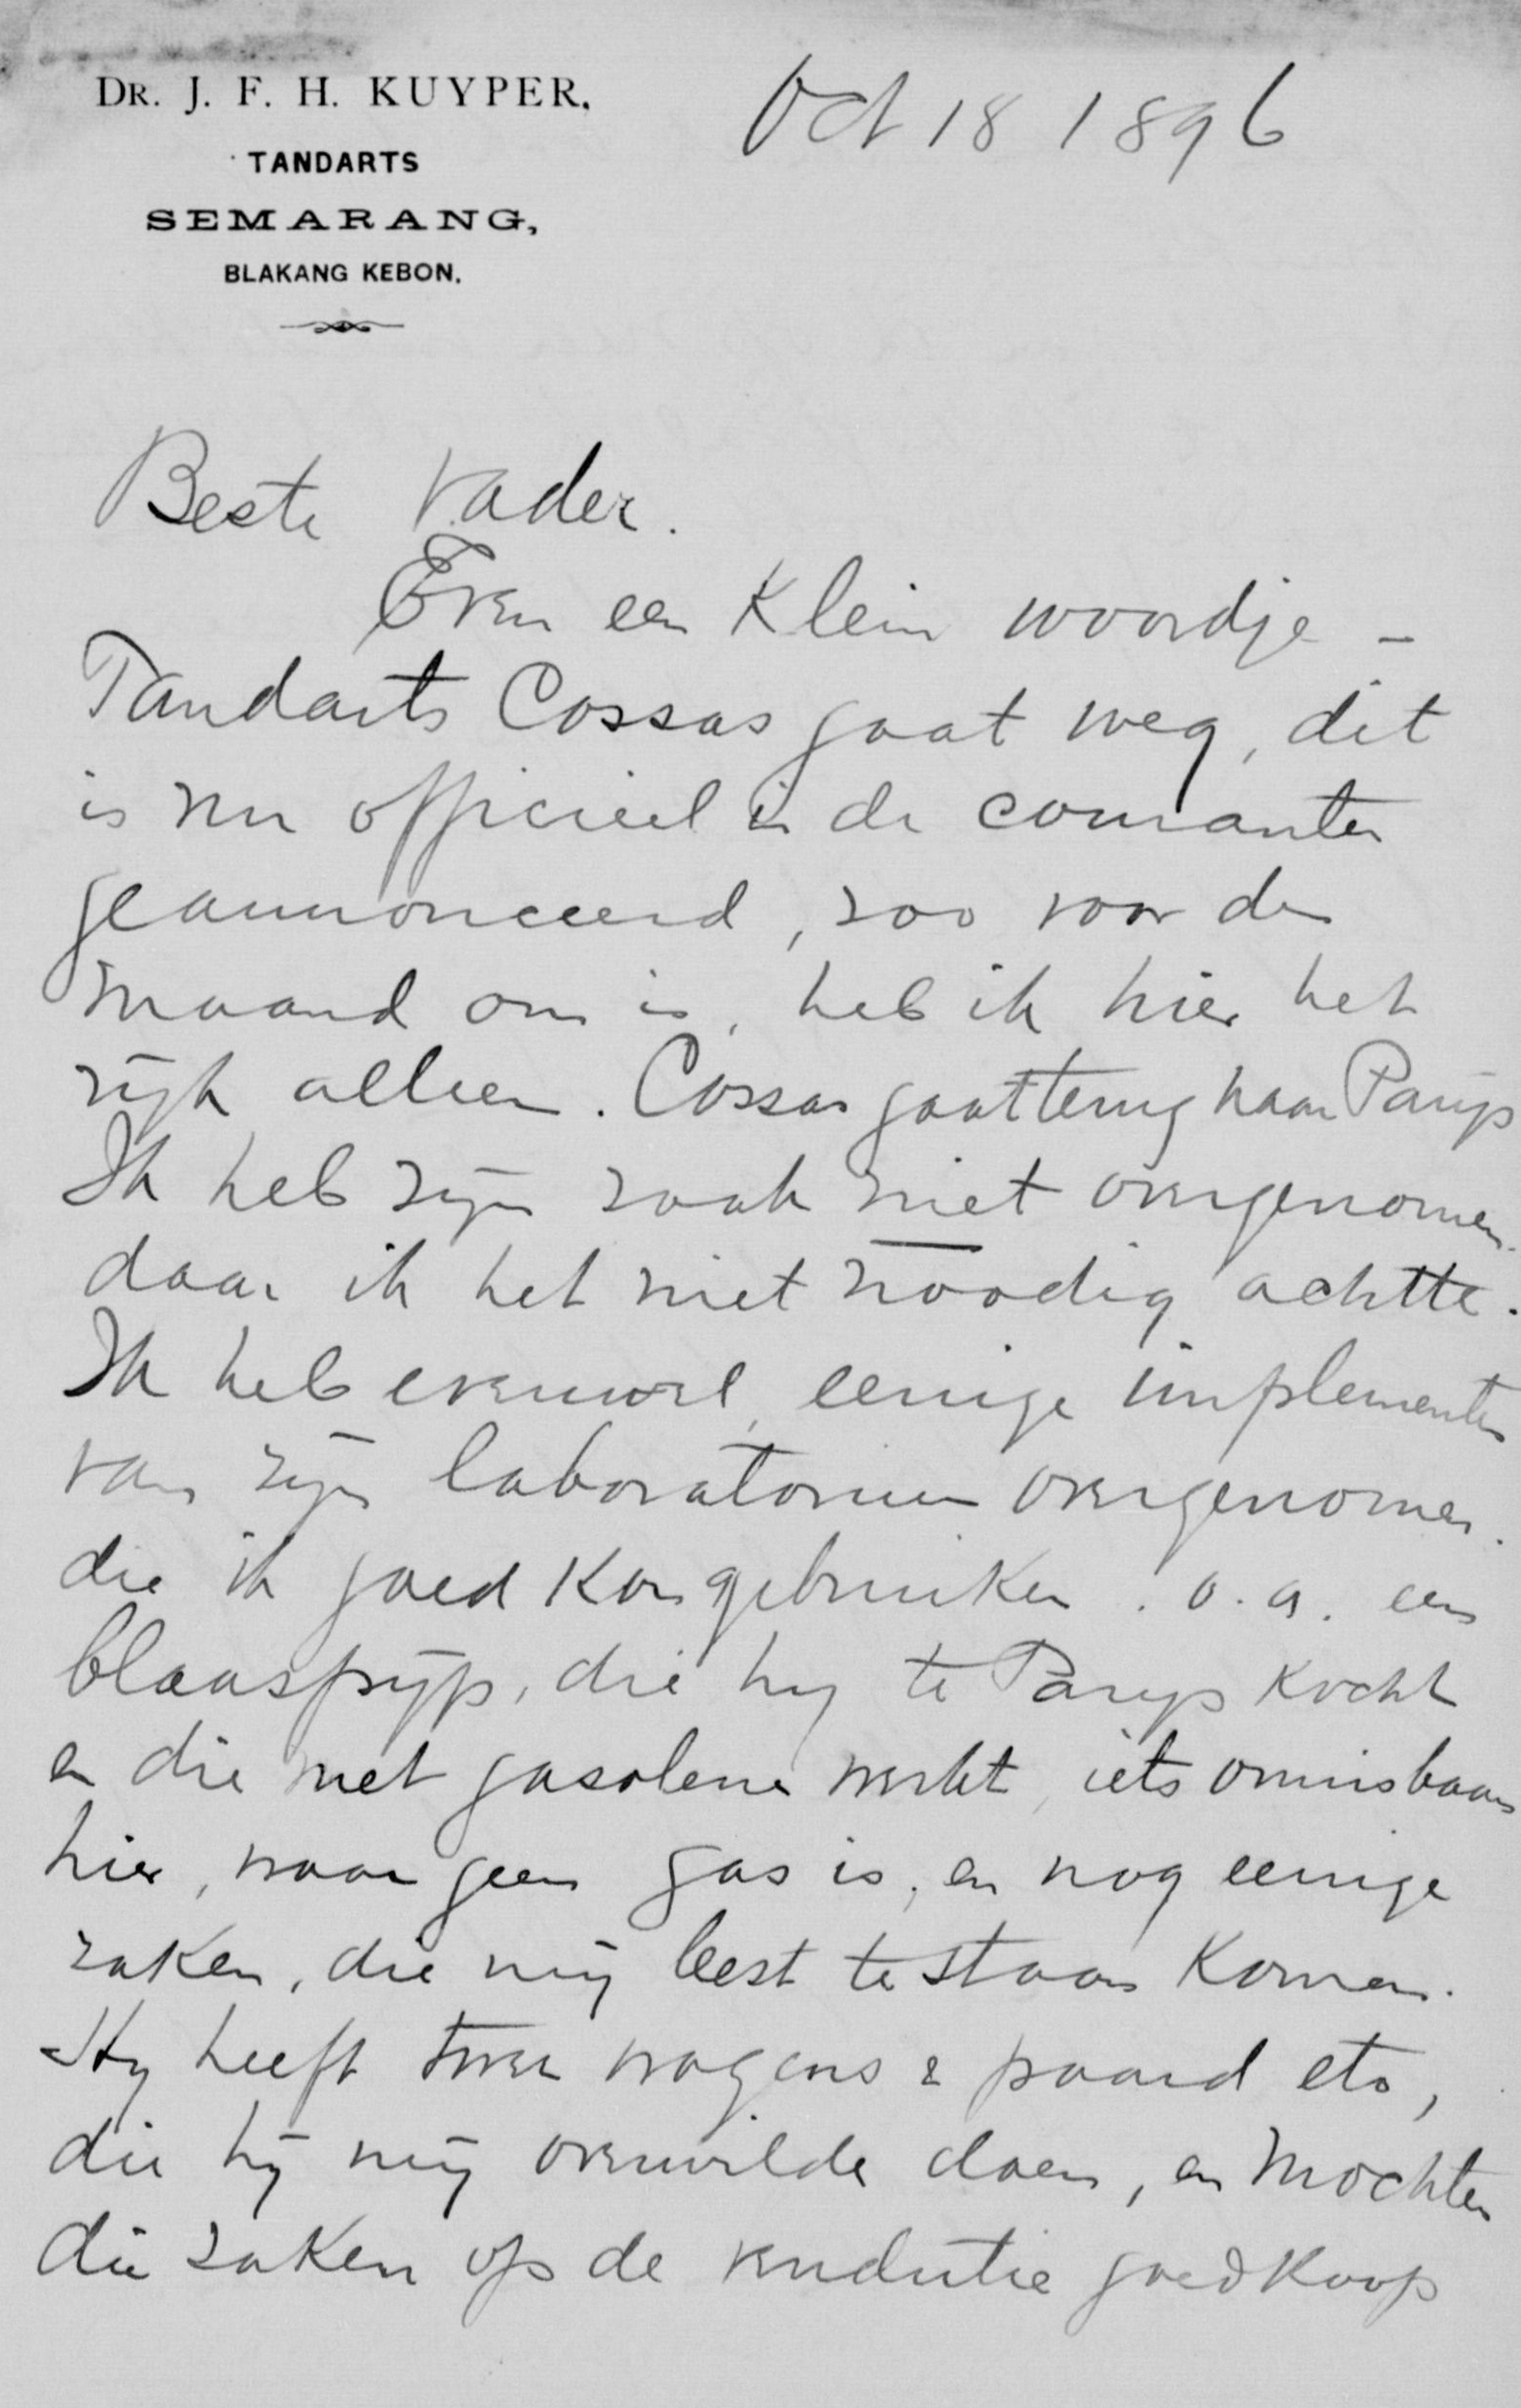 DR. J. F. H. KUYPER.
TANDARTS
SEMARANG,
BLAKANG KEBON.
Oct 18 1896
Beste Vader.
Even een klein woordje –
Tandarts Cossas gaat weg, dit
is nu officieel in de couranten
geannonceerd, zoo voor de
maand om is, heb ik hier het
rijk alleen. Cossas gaat terug naar Parijs
Ik heb zijn zaak niet overgenomen.
daar ik het niet noodig achtte.
Ik heb evenwel, eenige implementen
van zijn laboratorium overgenomen.
die ik goed kon gebruiken. o.a. een
blaaspijp, die hij te Parijs kocht
en die met gasolene werkt, iets onmisbaars
hier, waar geen gas is, en nog eenige
zaken, die mij best te staan komen.
Hij heeft twee wagens & paard etc,
die hij mij overwilde doen, en mochten
die zaken op de vendutie goedkoop